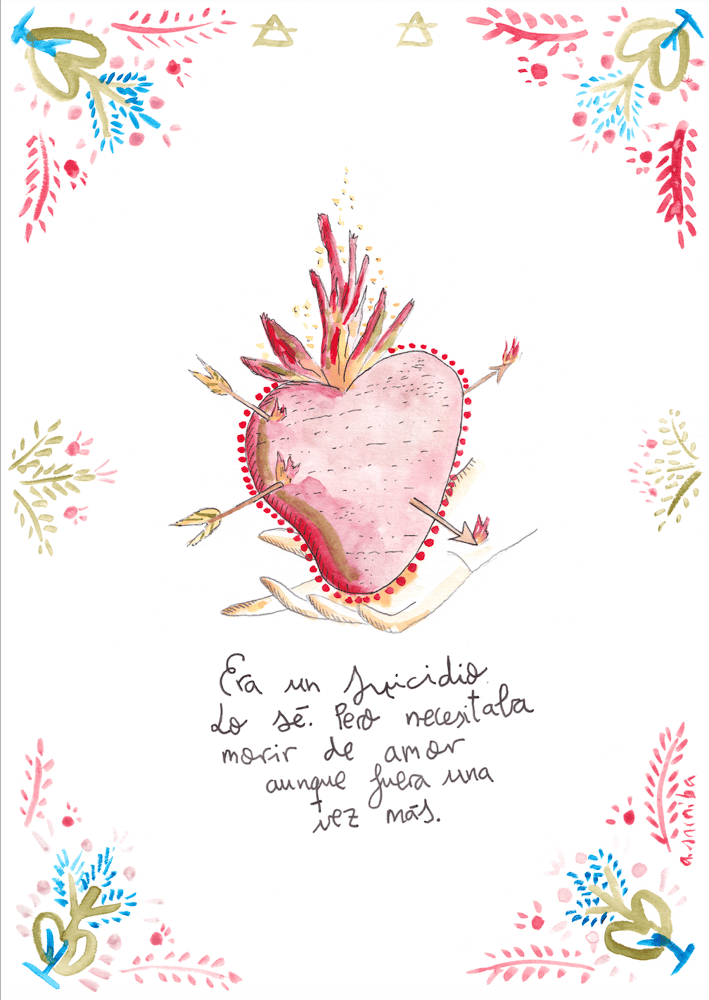 Era un suicidio.
Lo sé. Pero necesitaba
morir de amor
aunque fuera una
vez más.